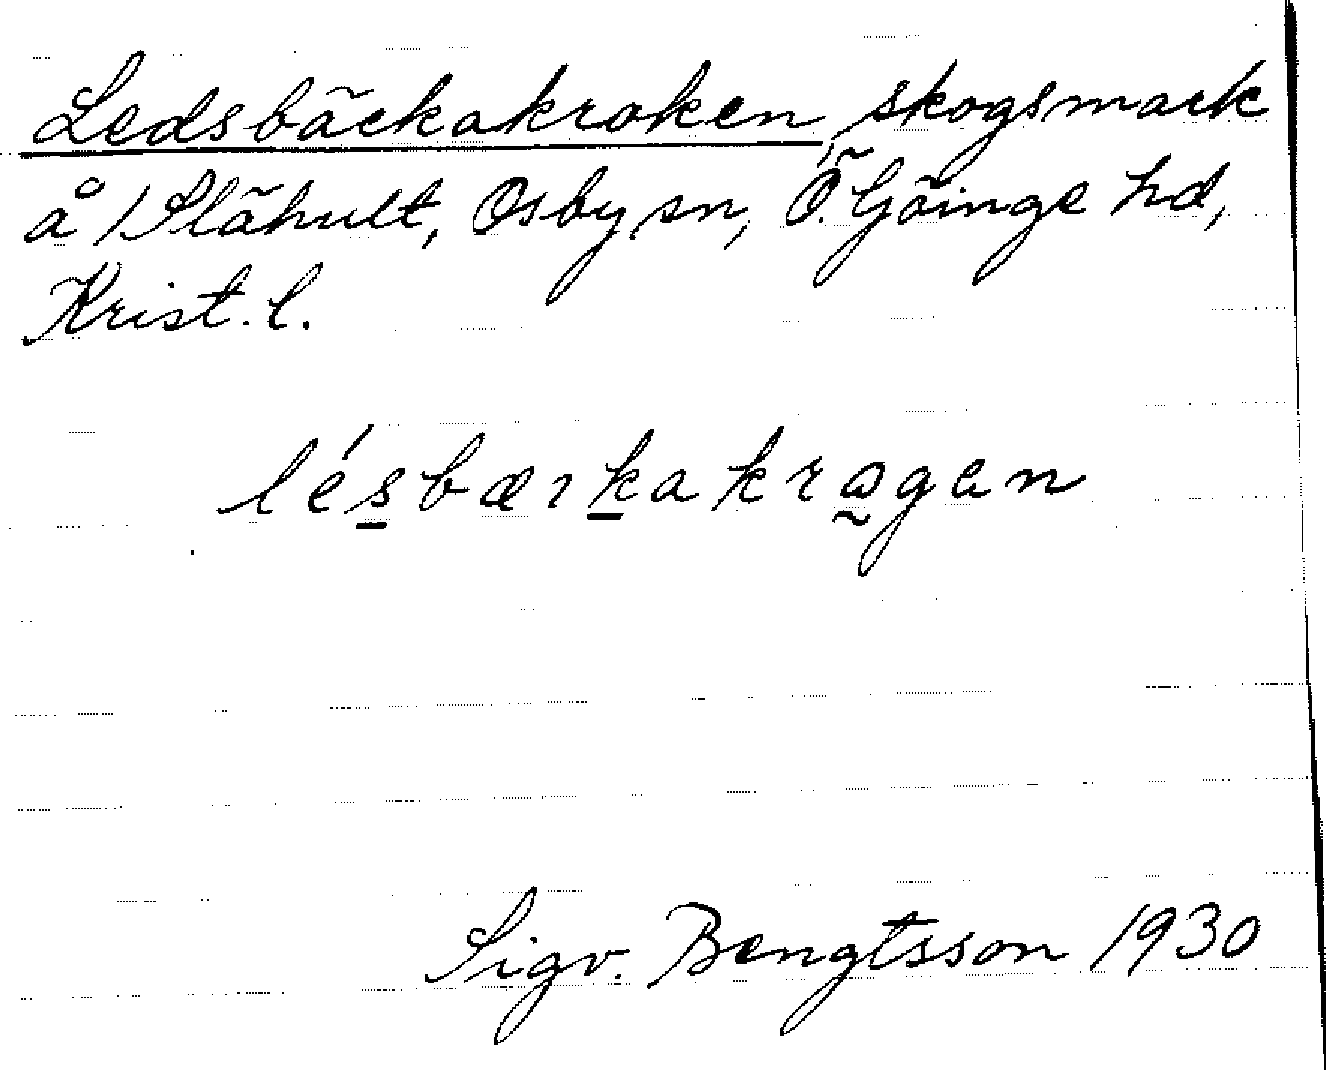 Ledsbäckakroken, skogsmark
å 1 Slähult, Osby sn, Ö. Göinge hd,
Krist. l.
lésbæıkakrɑgen
Sigv. Bengtsson 1930